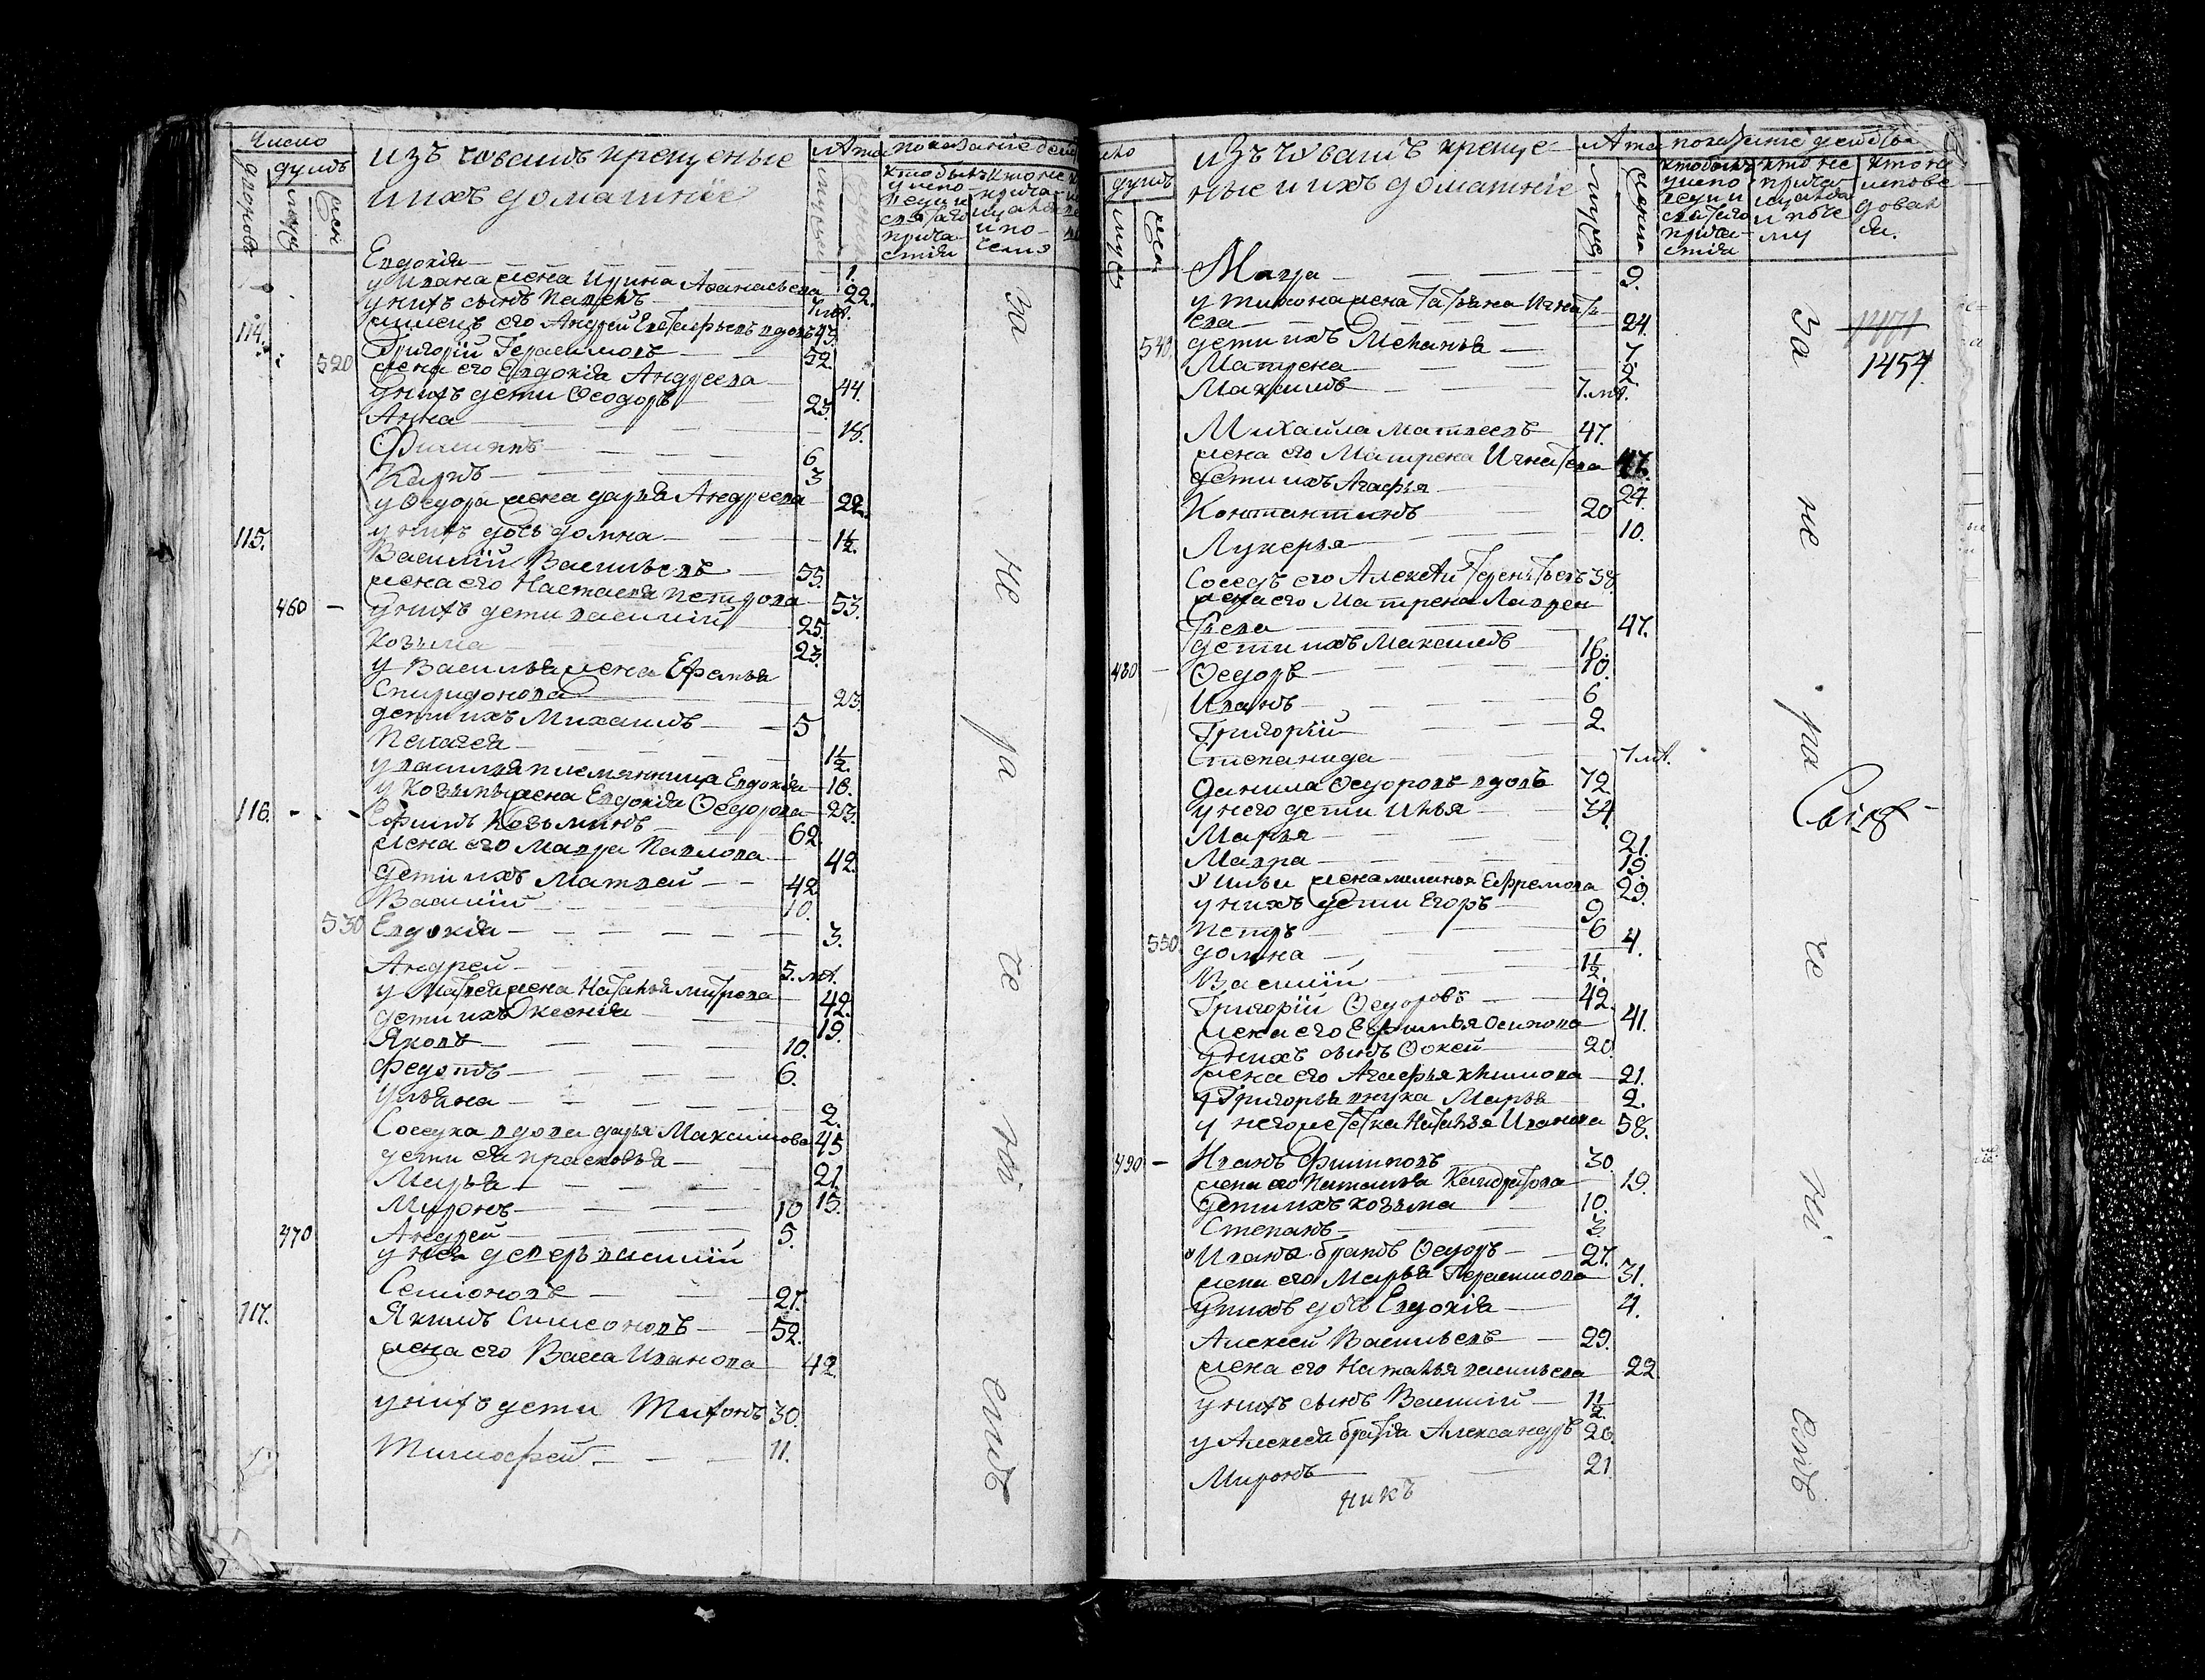 Число
душъ
дворовъ
мужъ
жен
изъ чювашъ крещеные
и ихъ домашніе
лѣта
мужеска
женска
показаніе дей
кто былъ
у испо
веди и
святаго
прича
стія
кто не
прича
щался
и по
чему
Евдокія 1.
у Ивана жена Ирина Аѳанасьева 22.
у нихъ сынъ Павелъ 7 мѣ.
114.
Григорій Герасимовъ 52.
520 жена его Евдокія Андреева 44.
у нихъ дети Ѳеодоръ 23.
Анна 18.
Филиппъ 6
Карпъ 3
у Ѳедора жена Дарья Андреева 22.
у нихъ дочь Домна 1 1/2.
115. Василій Васильевъ 55.
жена его Настасья Петрова 53.
460 у нихъ дети Василій 25.
Козьма 23.
у Василья жена
Спиридонова 23.
дети ихъ Михаилъ 5
Пелагея 1 1/2.
у Василья племянница Евдокія 18.
у Козьмы жена Евдокія Ѳедорова 23.
116. Ефимъ Козьминъ 62.
жена его Мавра Павлова 42.
дети ихъ Матвей 42
Василій 10.
530 Евдокія 3.
Андрей 5. мѣ.
у Матвея жена Наталья 42.
дети ихъ Ксенія 19.
Яковъ 10.
Федотъ 6.
Ульяна 2.
Соседка вдова Дарья Максимова 45
дети ея Прасковья 21.
Марья 15.
Миронъ 10
470 Андрей 5.
у нея деверь Василій
Семіоновъ 27.
117. Якимъ Симеоновъ 52.
жена его Васса Иванова 42.
у нихъ дети Тихонъ 30.
Тимофей 11.
За
не
ра
че
ні
емъ
душъ
мужъ
жен
изъ чювашъ креще
ные и ихъ домашніе
лѣта
мужеска
женска
показаніе действа
кто былъ
у испо
веди и
святаго
прича
стія
кто не
прича
щался
и поче
му
кто не
испове
довал
ся.
Мавра 9.
у Тихона жена Татьяна Игнать
ева 24.
540. дети ихъ Меланья 7.
Матрена 2.
Максимъ 7. мѣ.
Михаила Матвеевъ 47.
жена его Матрена Игнатева 47.
дети ихъ Агафья 24.
Константинъ 20
Лукерья 10.
Соседъ его Алексѣй Терентьевъ 38.
жена его Матрена Лаврен
тьева 47.
дети ихъ Максимъ 16.
480 Ѳедоръ 10.
Иванъ 6
Григорій 2.
Степанида 7 мѣ.
Данила Ѳедоровъ вдовъ 72.
у него дети Илья 34.
Марья 21.
Мавра 19.
у Ильи жена Меланья Ефремова 29.
у нихъ дети Егоръ 9
Петръ 6
550. Домна 4.
Василій 1 1/2.
Григорій Ѳедоровъ 42.
жена его Ефимья Осипова 41.
у нихъ сынъ Ѳокей 20.
жена его Агафья Якимова 21.
у Григорья внука Марья 2.
у него тетка Наталья Иванова 58.
490 Иванъ Филиповъ 30.
жена его Наталья Кондратова 19.
дети ихъ Козьма 10.
Степанъ 3.
у Ивана братъ Ѳедоръ 27.
жена его Марья Герасимова 31.
у нихъ дочь Евдокія 4.
Алексей Васильевъ 29.
жена его Наталья Васильева 22.
у нихъ сынъ Василій 1 1/2.
у Алексея братья Александръ 26.
Миронъ 21
никъ
За
не
ра
че
ні
емъ
1471
1454.